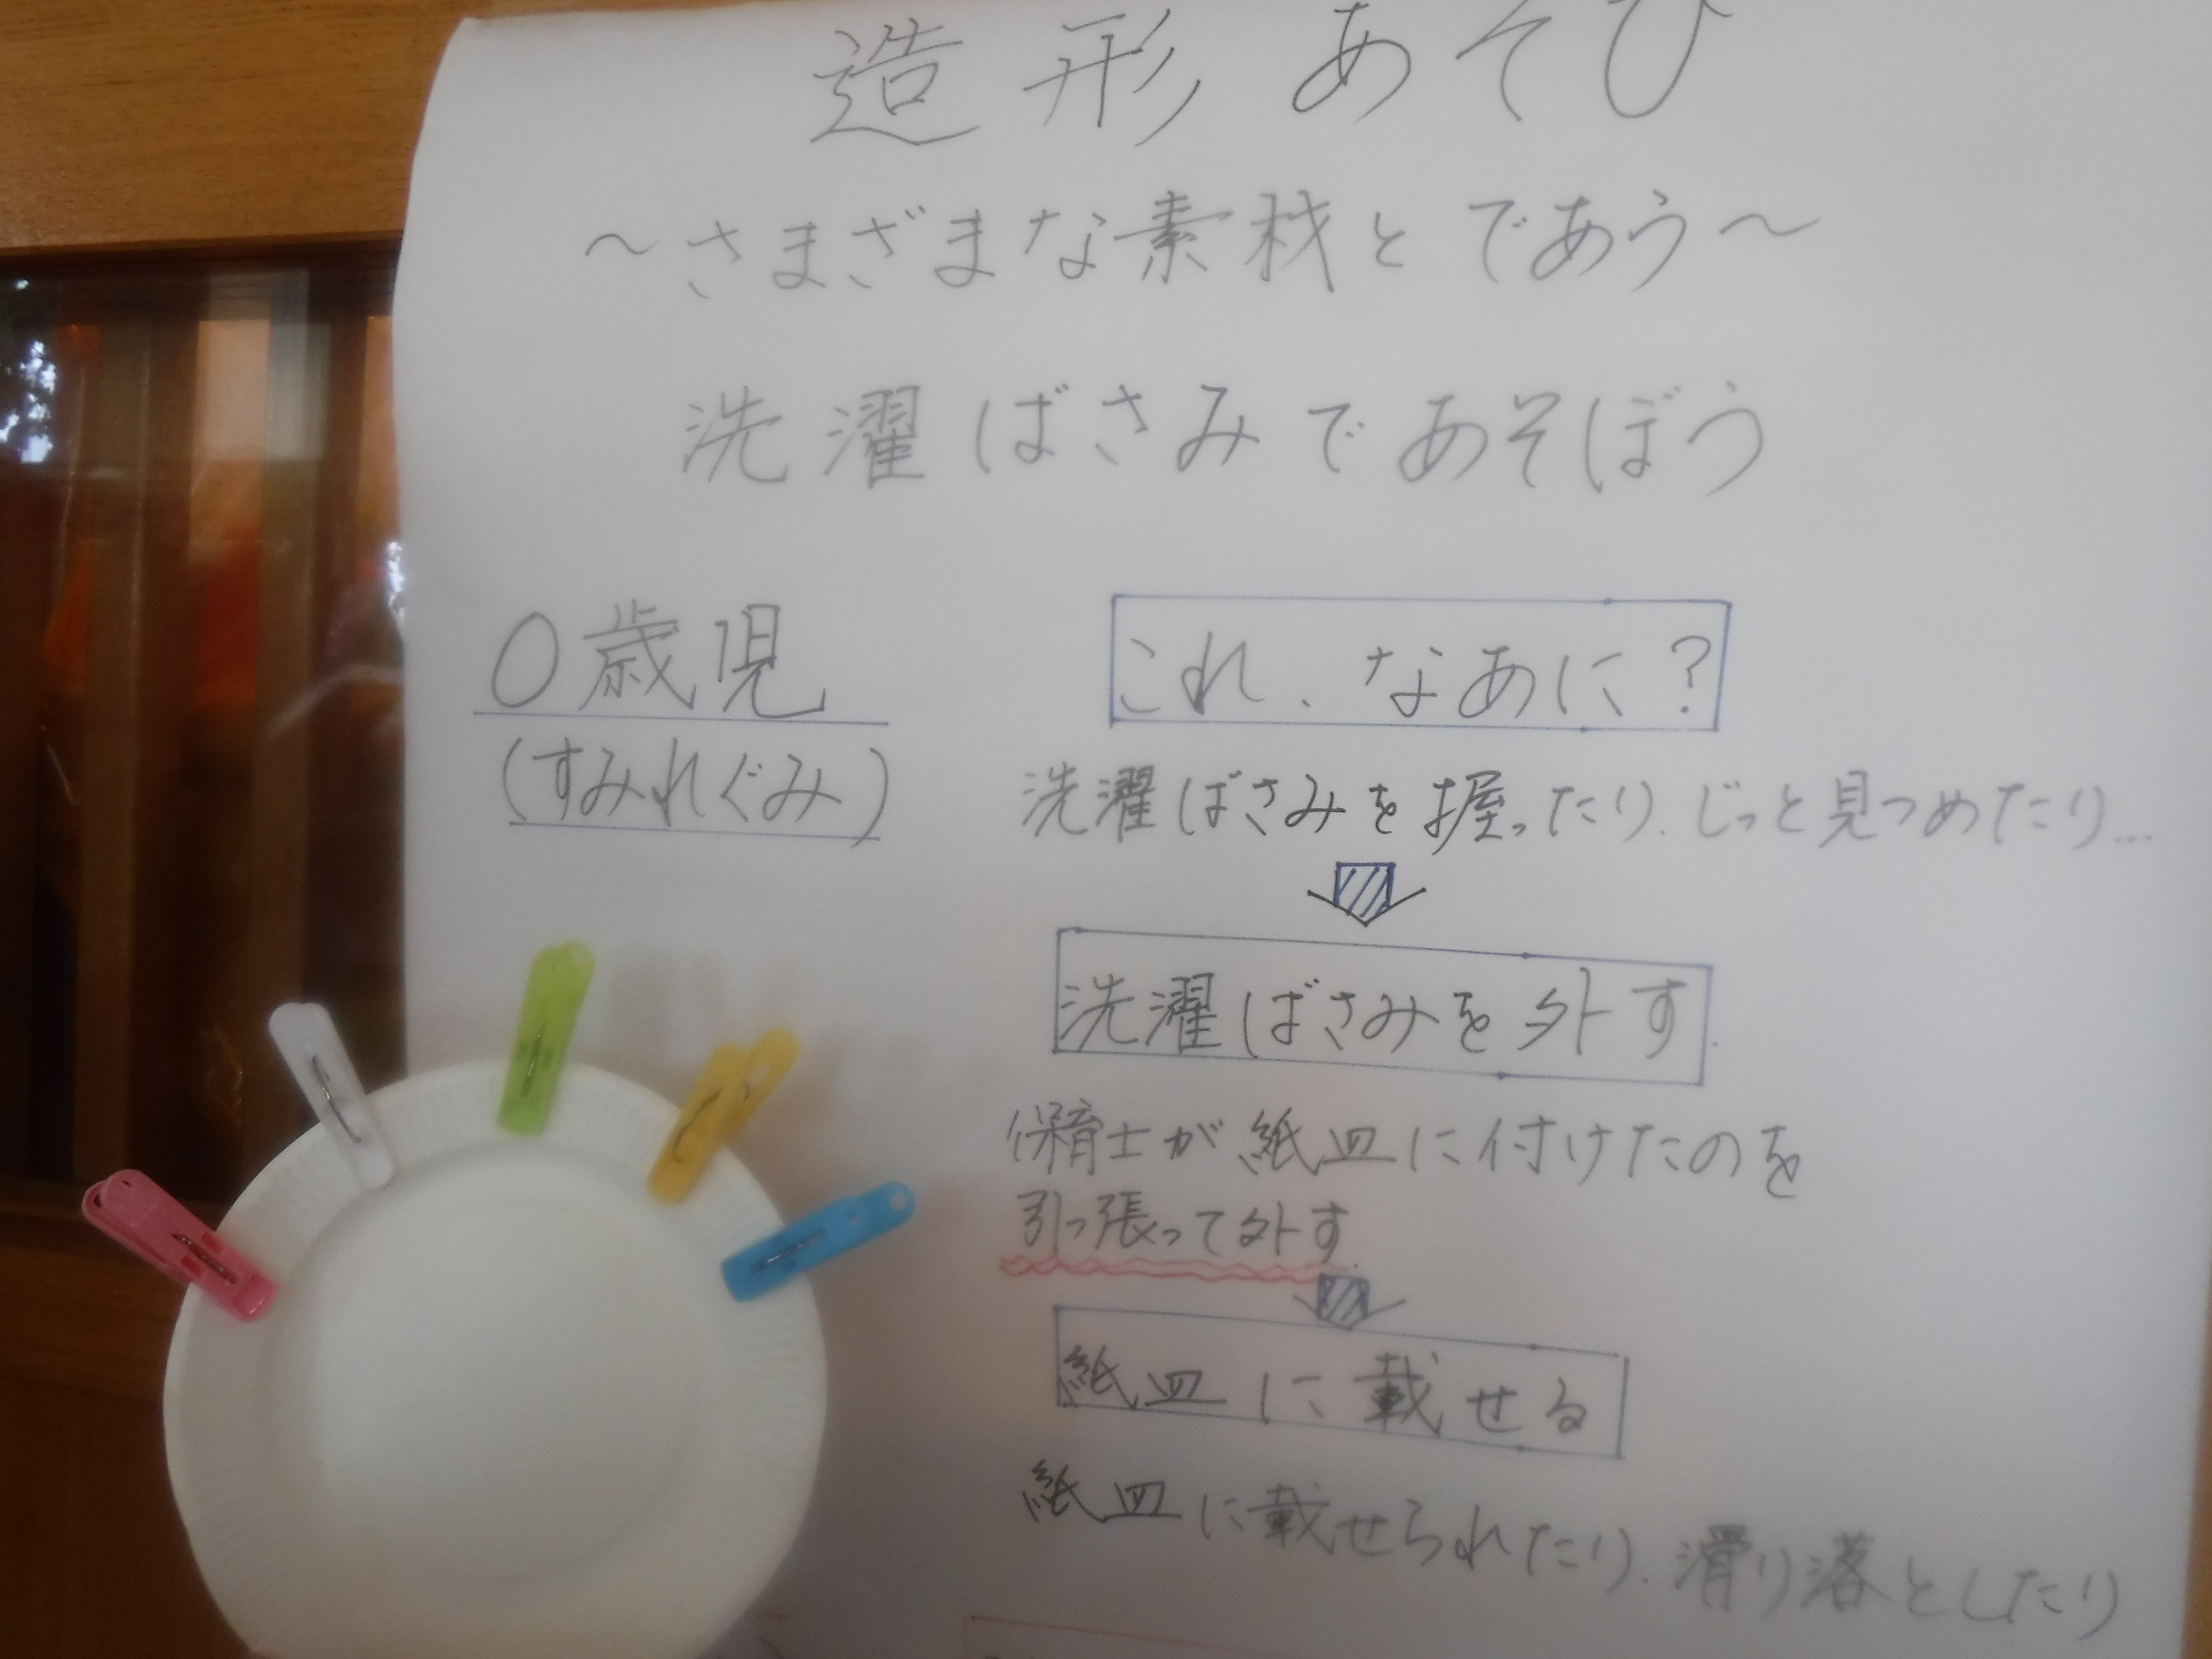 造形あそび
～さまざまな素材とであう～
洗濯ばさみであそぼう
0歳児
(すみれぐみ)
これ、なあに?
洗濯ばさみを握ったり、じっと見つめたり…
洗濯ばさみを外す
保育士が紙皿に付けたのを
引っ張って外す
紙皿に載せる
紙皿に載せられたり、滑り落としたり